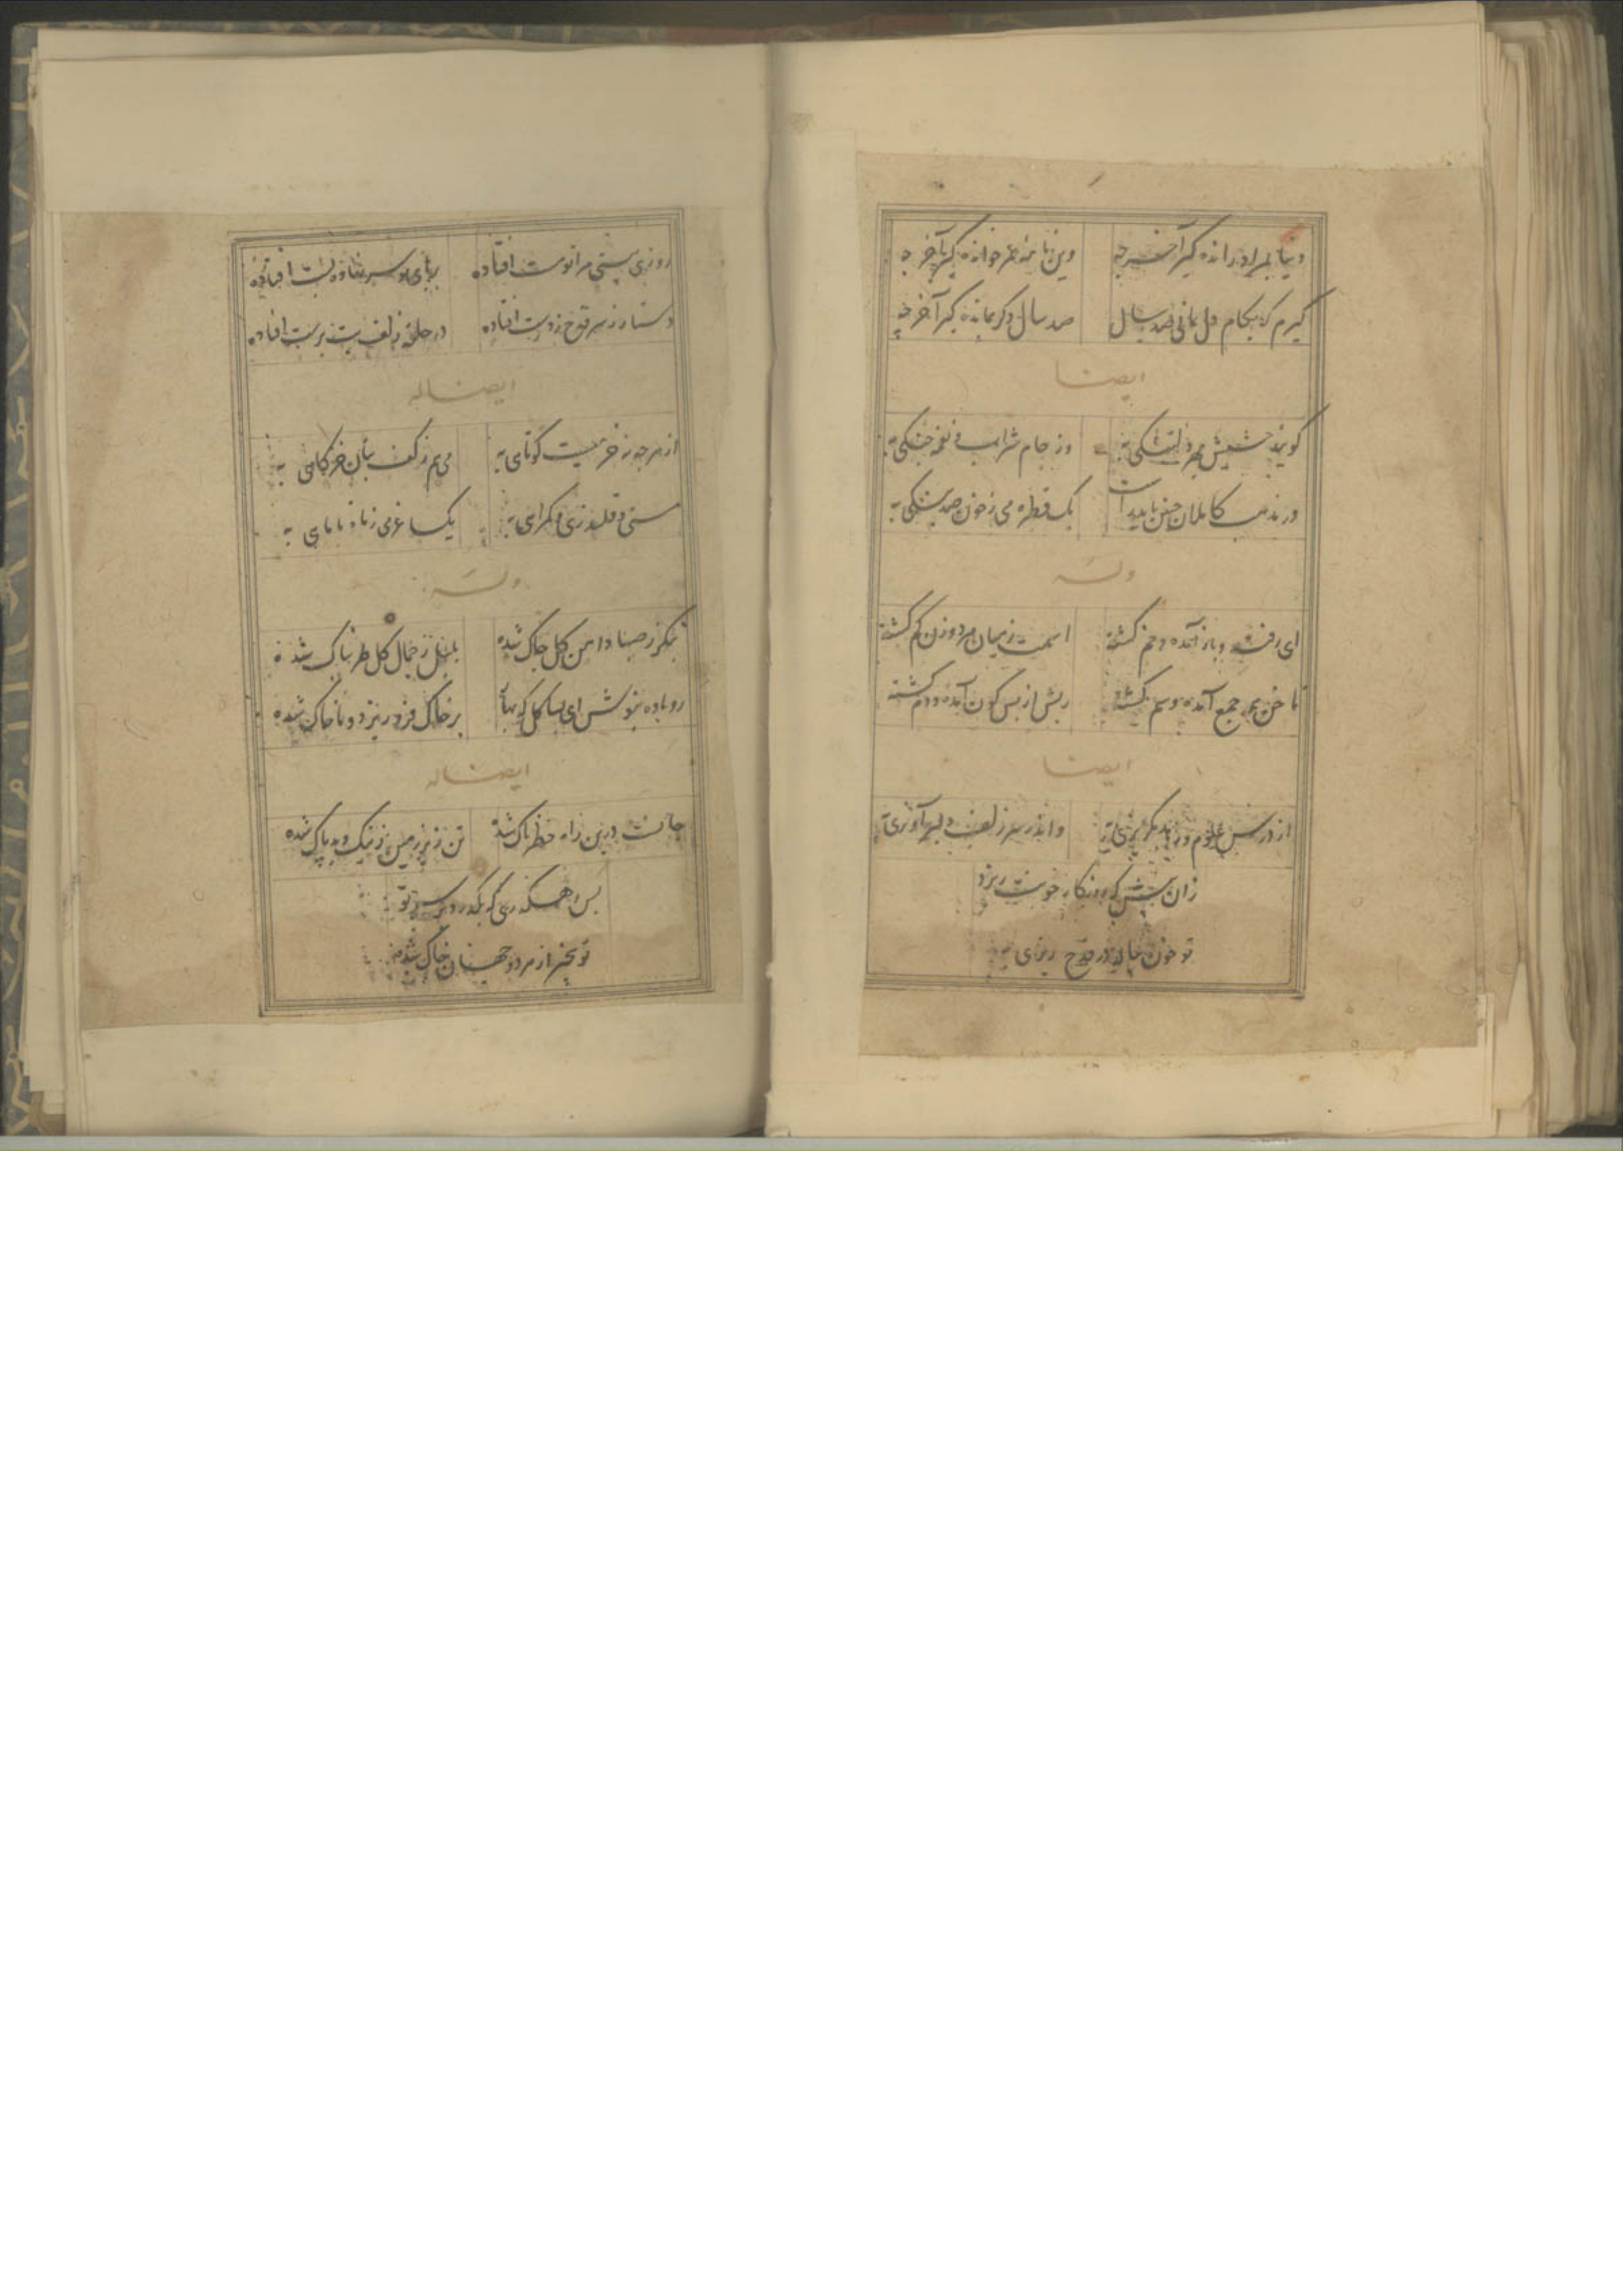 دنیا بمراد رانده گیر آخر چه
وین نامه عمر خوانده گیر آخر چه
گیرم که بکام دل بمانی صد سال
صد سال دگر بمانده گیر آخر چه
ایضا
گویند حشیش بهر دلتنگی به
وز جام شراب و نغمه چنگی به
در مذهب کاملان چنین باید است
یک قطره می ز خون صد بنگی به
وله
ای رفته و باز آمده و خم گشته
اسمت ز میان مردوزن گم گشته
ناخن همه جمع آمده و سم گشته
ریش از پس کون آمده و دم گشته
ایضا
از درس علوم و زهد بگریزی به
واندر سر زلف دلبر آویزی به
زان پیش که روزگار خونت ریزد
تو خون پیاله در قدح ریزی به
روزی بینی مرا تو مست افتاده
بر پای تو سر نهاده پست افتاده
دستار ز سر قدح ز دست افتاده
در حلقه زلف بت پرست افتاده
ایضا له
از هرچه نه خرمیست کوتاهی به
می هم ز کف بتان خرگاهی به
مستی و قلندری و گمراهی به
یک ساغر می ز ماه تا ماهی به
وله
بنگر ز صبا دامن گل چاک شده
بلبل ز جمال گل طربناک شده
رو باده بنوش ای بسا گل که بیا
بر خاک فرو ریزد و با خاک شده
ایضا له
جانت درین راه خطرناک شده
تن زیر زمین ز نیک و بد پاک شده
بس رهگذری که بگذرد بر سر تو
تو بیخبر از هر دو جهان خاک شده